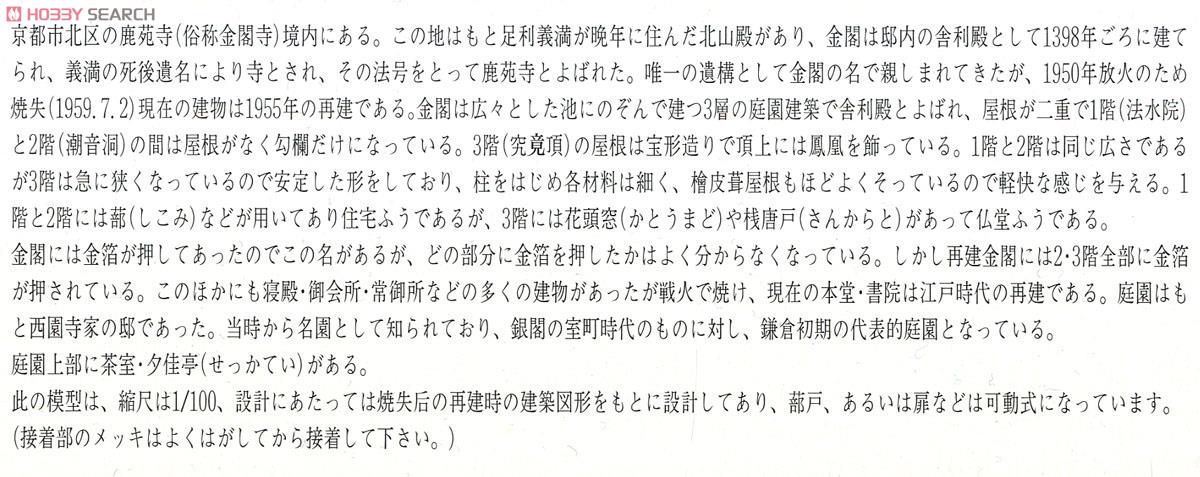 HOBBY SEARCH
京都市北区の鹿苑寺(俗称金閣寺)境内にある。この地はもと足利義満が晩年に住んだ北山殿があり、金閣は邸内の舎利殿として1398年ごろに建て
られ、義満の死後遺名により寺とされ、その法号をとって鹿苑寺とよばれた。唯一の遺構として金閣の名で親しまれてきたが、1950年放火のため
焼失(1959.7.2)現在の建物は1955年の再建である。金閣は広々とした池にのぞんで建つ3層の庭園建築で舎利殿とよばれ、屋根が二重で1階(法水院)
と2階(潮音洞)の間は屋根がなく勾欄だけになっている。3階(究竟頂)の屋根は宝形造りで頂上には鳳凰を飾っている。1階と2階は同じ広さである
が3階は急に狭くなっているので安定した形をしており、柱をはじめ各材料は細く、檜皮葺屋根もほどよくそっているので軽快な感じを与える。1
階と2階には蔀(しこみ)などが用いてあり住宅ふうであるが、3階には花頭窓(かとうまど)や桟唐戸(さんからと)があって仏堂ふうである。
金閣には金箔が押してあったのでこの名があるが、どの部分に金箔を押したかはよく分からなくなっている。しかし再建金閣には2·3階全部に金箔
が押されている。このほかにも寝殿·御会所·常御所などの多くの建物があったが戦火で焼け、現在の本堂·書院は江戸時代の再建である。庭園はも
と西園寺家の邸であった。当時から名園として知られており、銀閣の室町時代のものに対し、鎌倉初期の代表的庭園となっている。
庭園上部に茶室·夕佳亭(せっかてい)がある。
此の模型は、縮尺は1/100、設計にあたっては焼失后の再建時の建築図形をもとに設計してあり、蔀戸、あるいは扉などは可動式になっています。
(接着部のメッキはよくはがしてから接着して下さい。)